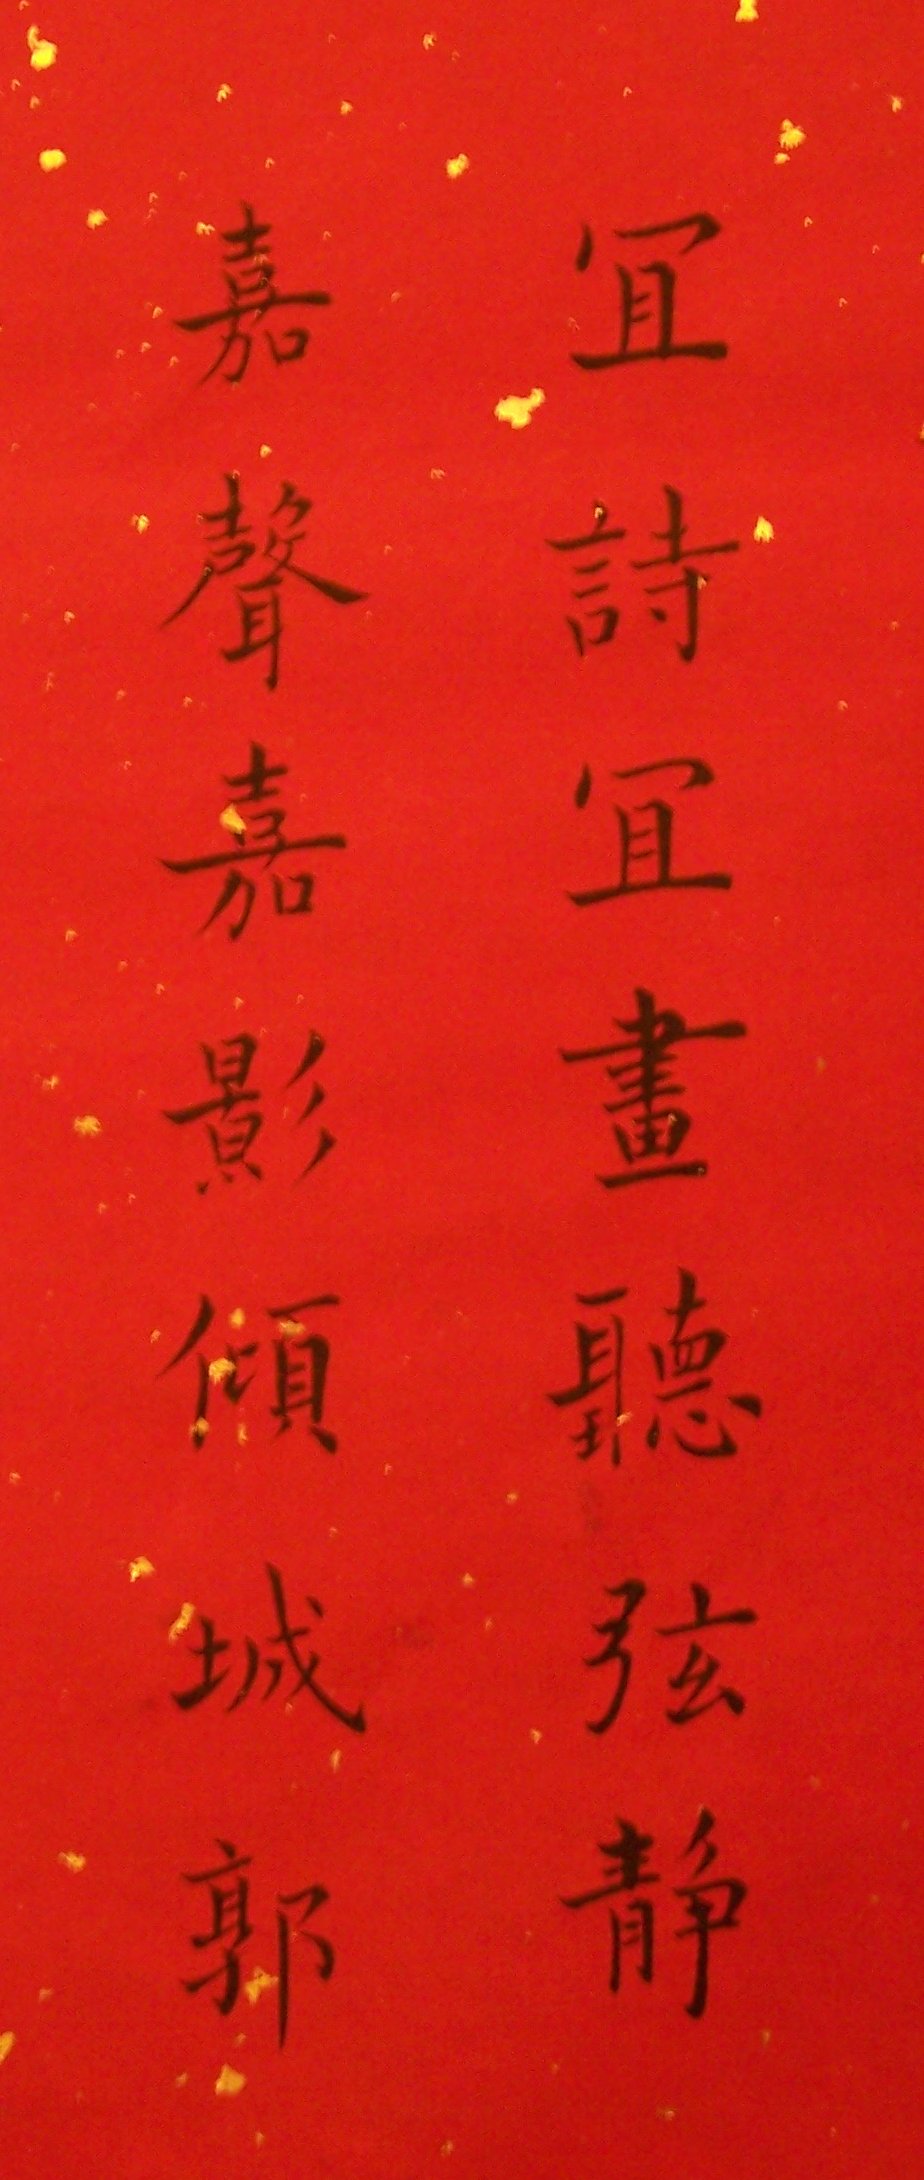 冝詩冝畫聽弦靜
嘉聲嘉影傾城郭